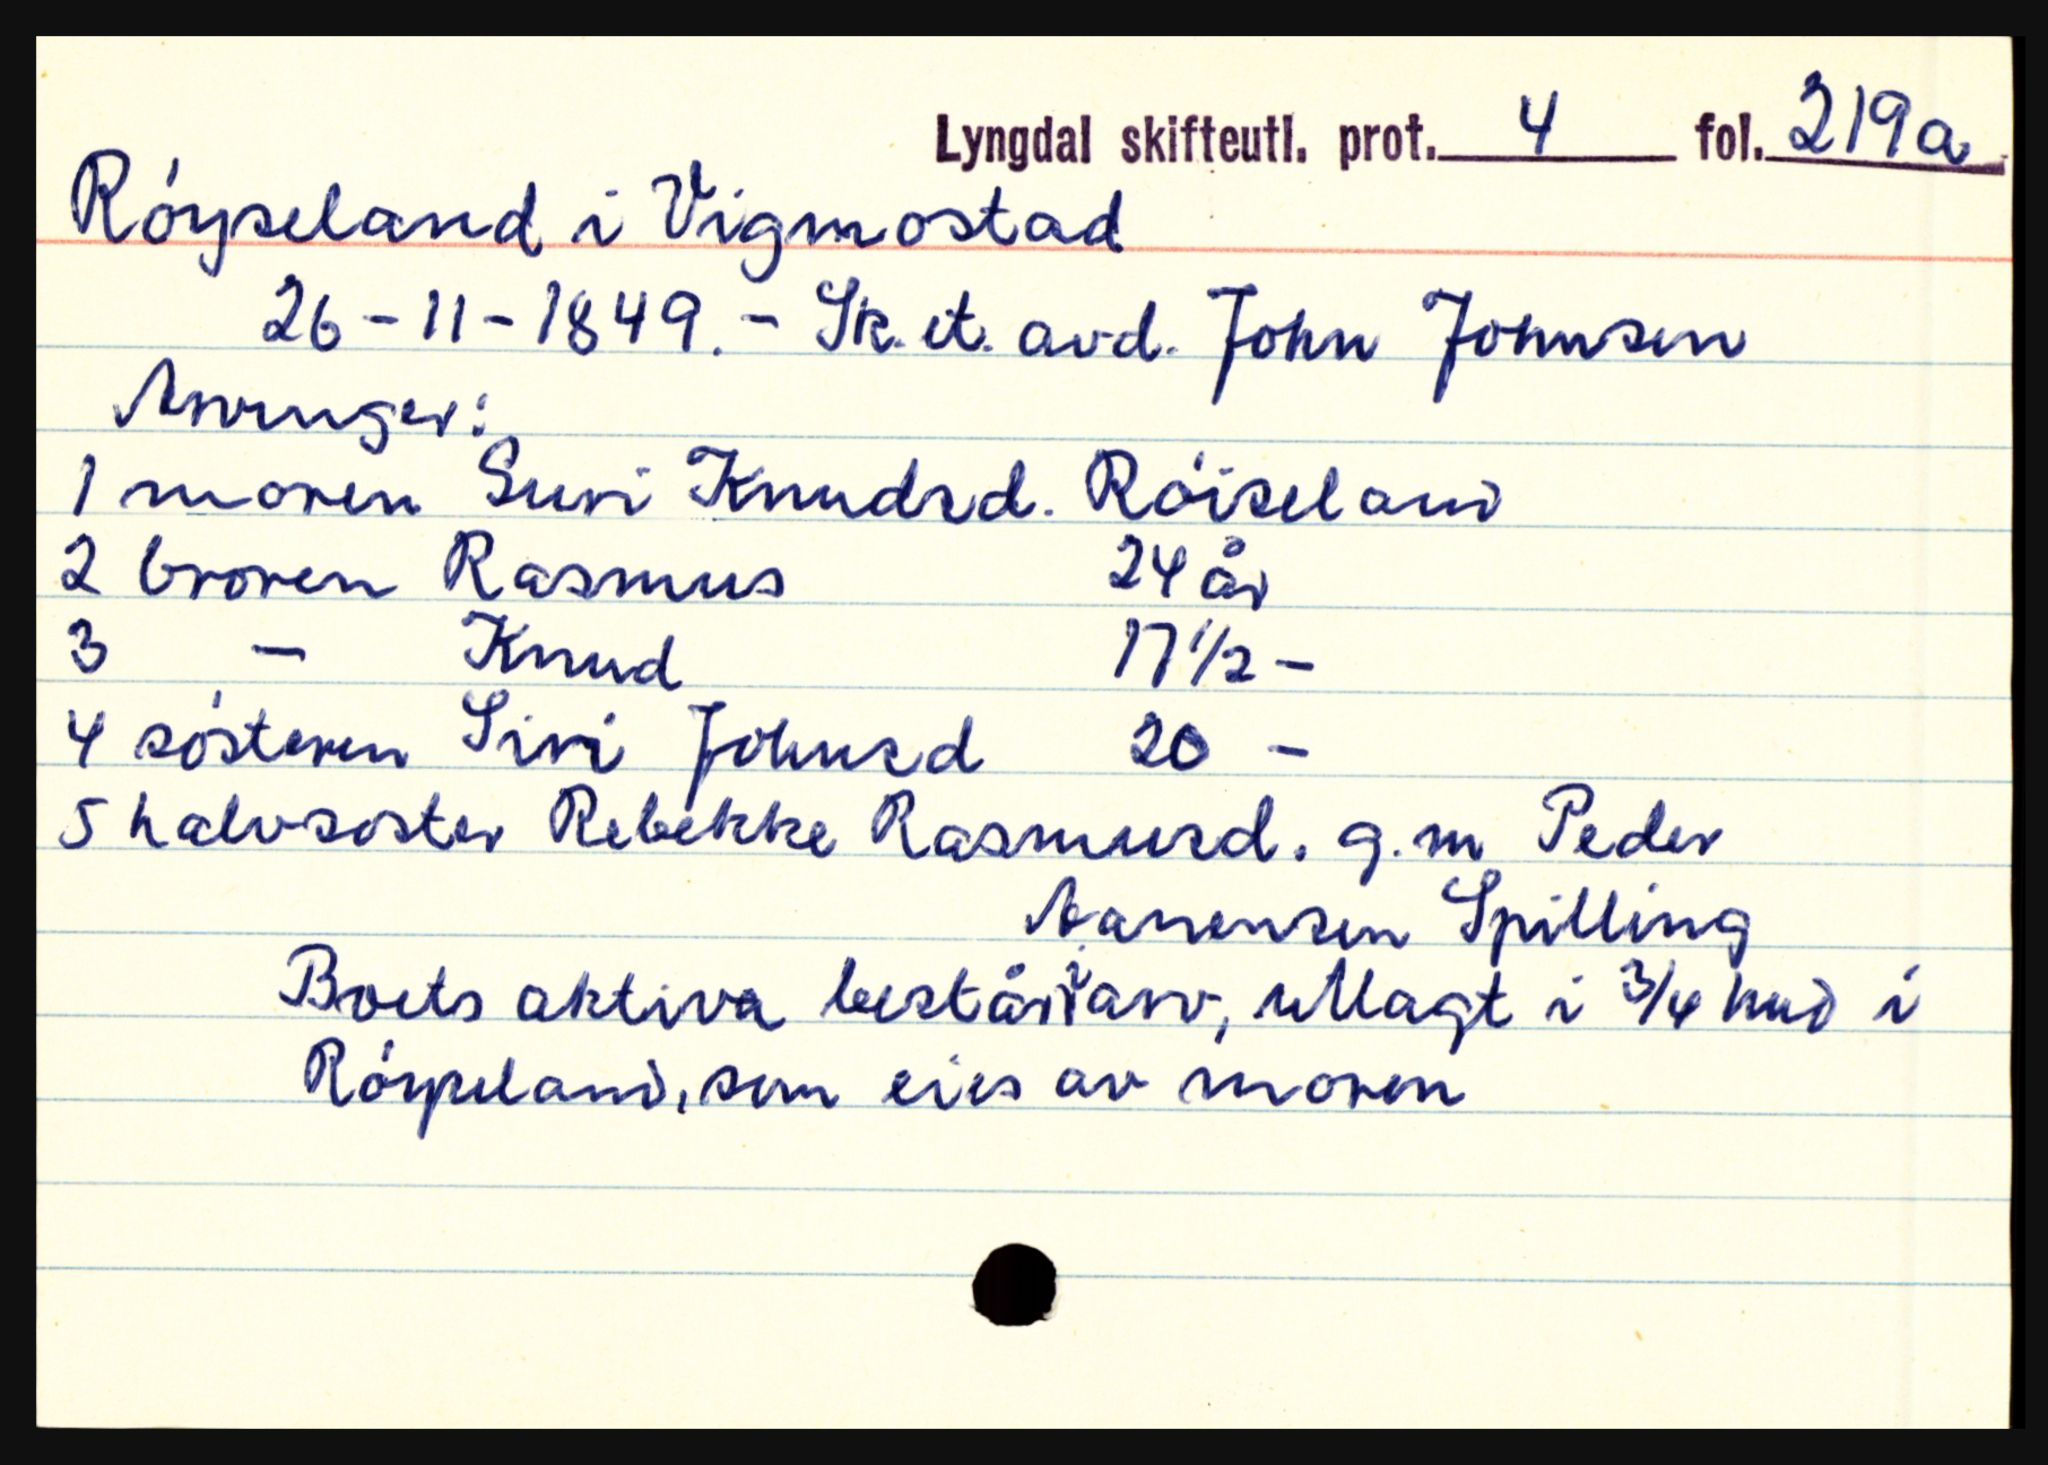 Lyngdal skifteutl. prot. 4 fol. 219a
Róyseland i Vigmostad
26-11-1849. - Sk. et. avd. John Johnsen
Arvinger:
1 moren Suri Knudsd. Róiseland
2 broren Rasmus 24 år
3 - Knud 17 1/2 -
4 sósteren Siri Johnsd 20 -
5 halvsoster Rebekke Rasmusd. g.m Peder
Aanensen Spilling
Boets aktiva består i arv, utlagt i 3/4 hud i
Róyseland, som eies av moren